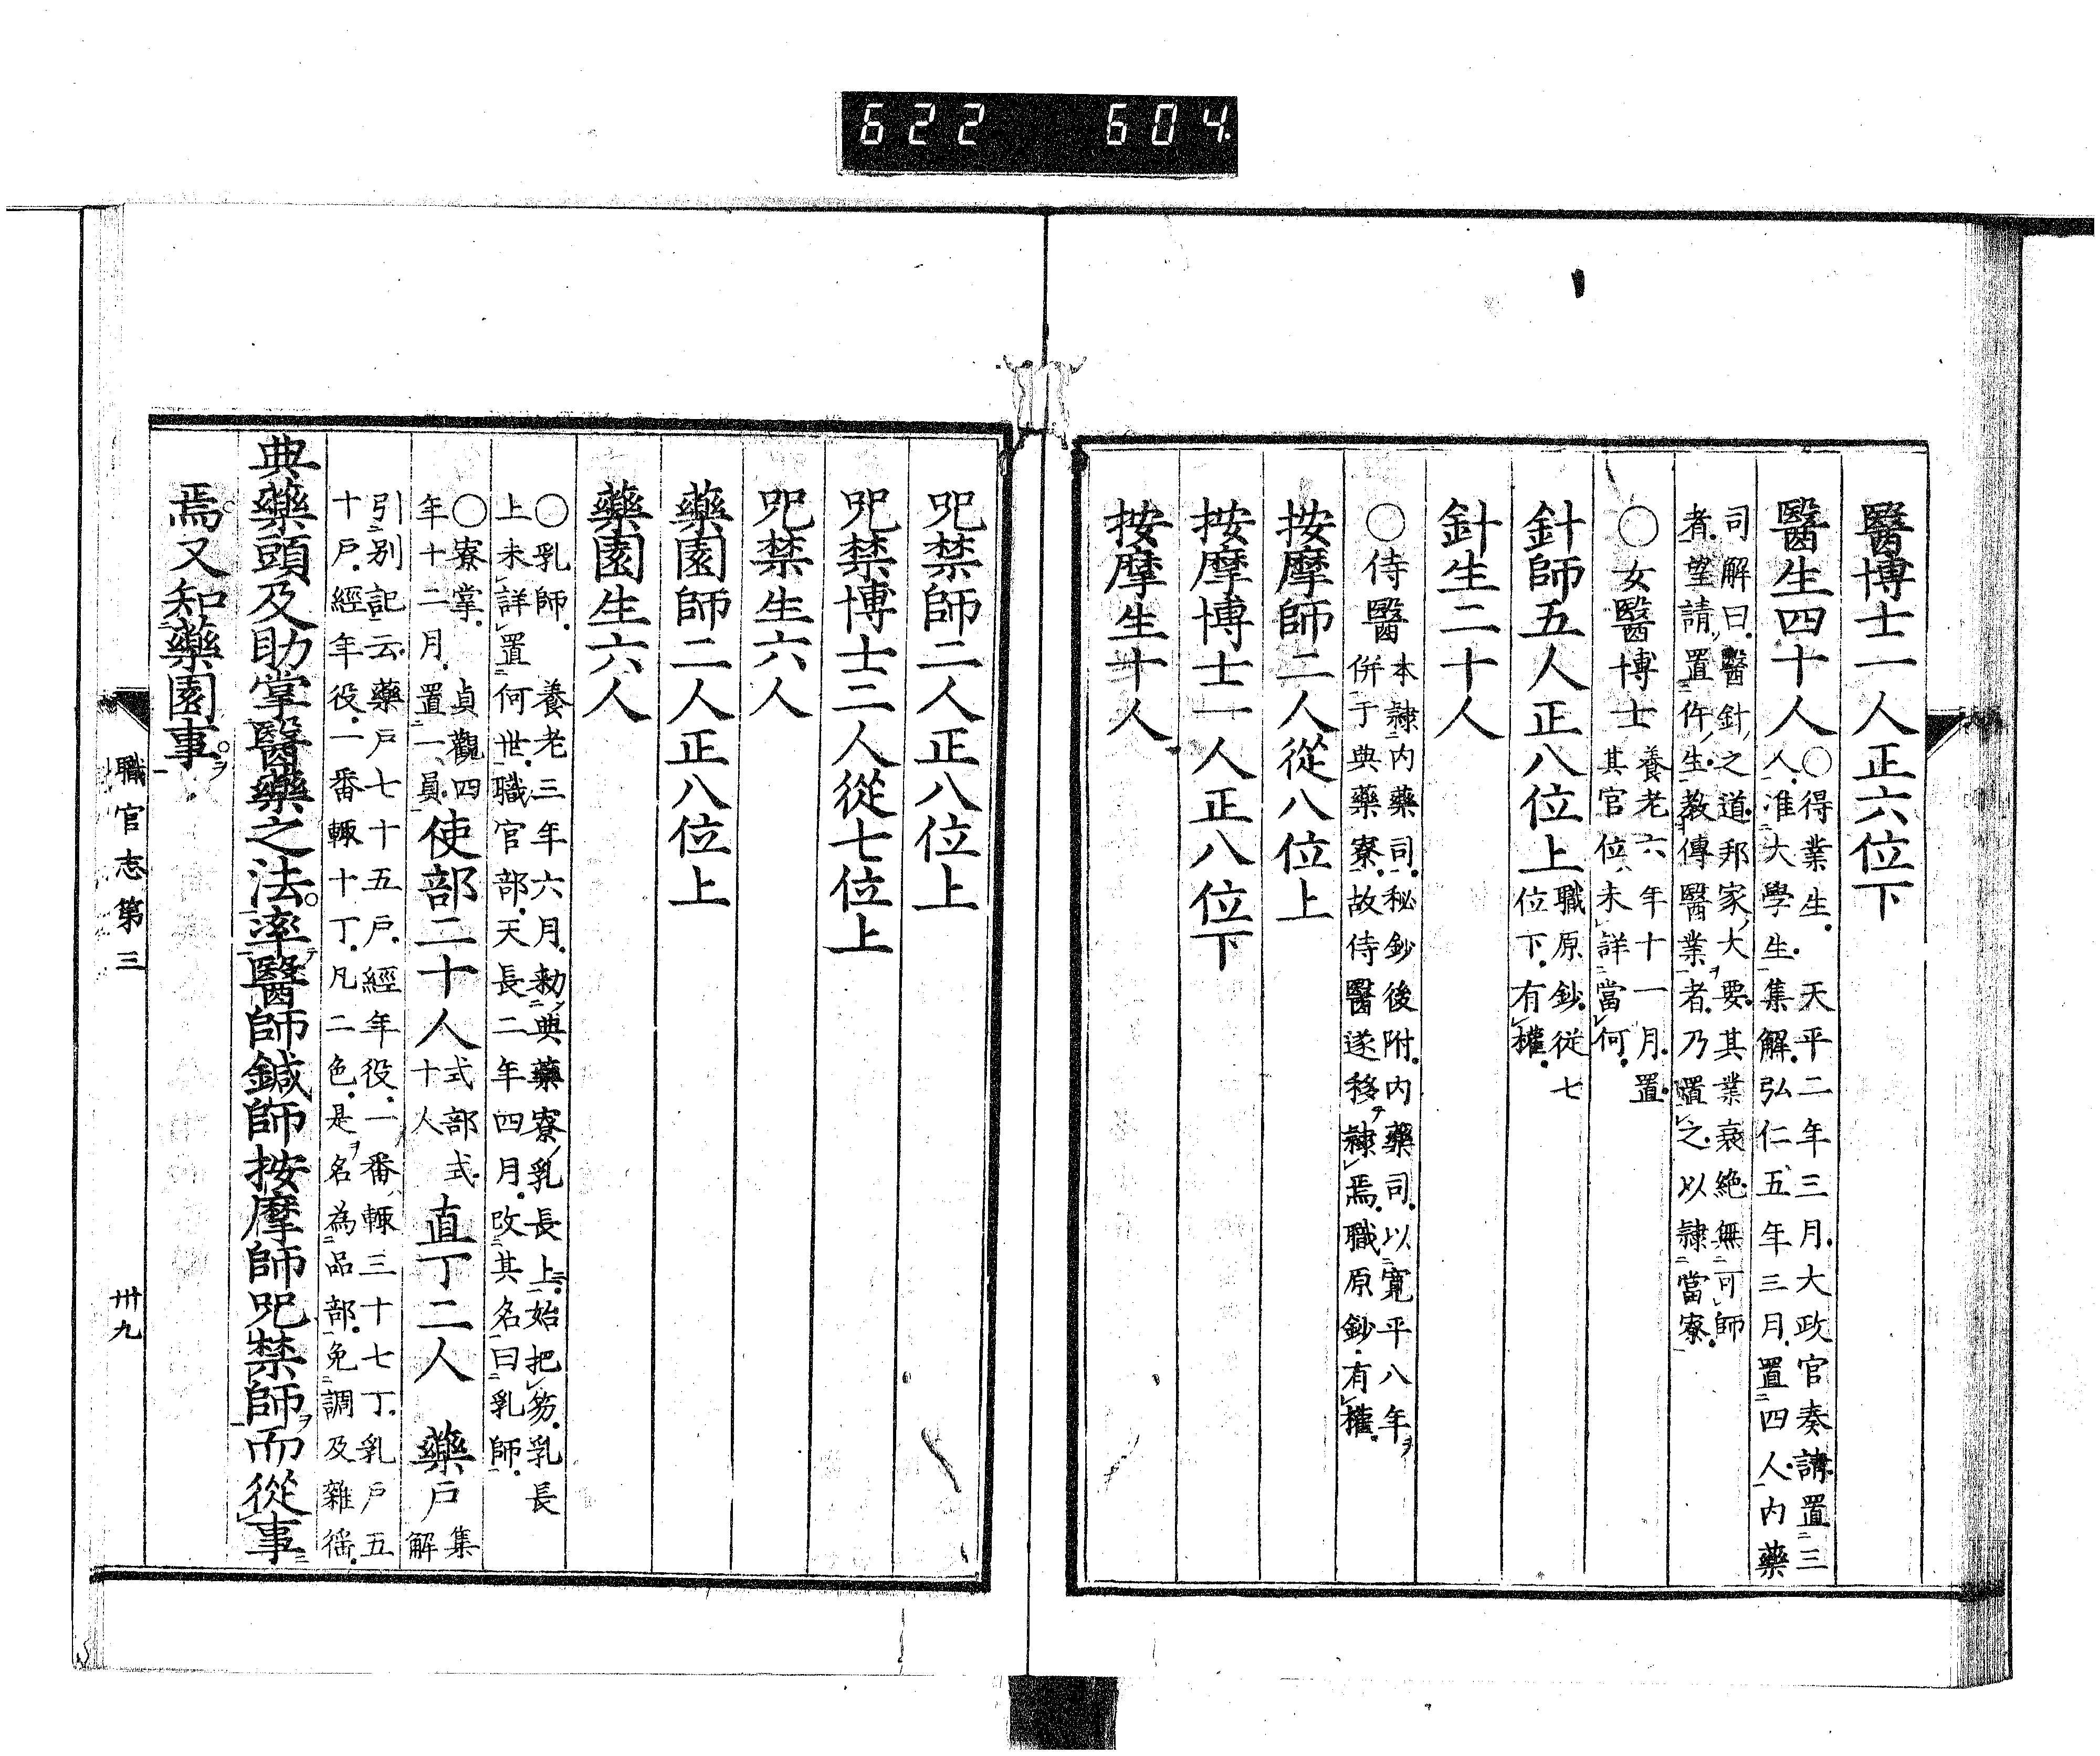 622 604.
醫博士一人正六位下
醫生四十人○得業生天平二年三月大政官奏請置三
人准大學生集解弘仁五年三月置四人内藥
司解曰醫針之道邦家大要其業衰絶無可師
者望請置件生教傳醫業者乃置之以隷當寮
○女醫博士養老六年十一月置
其官位未詳當何
針師五人正八位上職原鈔從七
位下有權
針生二十人
○侍醫本隷内藥司秘鈔後附内藥司以寛平八年
併于典藥寮故侍醫遂移隷焉職原鈔有權
按摩師二人從八位上
按摩博士一人正八位下
按摩生十人
咒禁師二人正八位上
咒禁博士二人從七位上
咒禁生六人
藥園師二人正八位上
藥園生六人
○乳師養老三年六月勅典藥寮乳長上始把笏乳長
上未詳置何世職官部天長二年四月改其名曰乳師
○寮掌貞觀四
年十二月置一員使部二十人式部式
十人直丁二人 藥戸集
解
引別記云藥戸七十五戸經年役一番輙三十七丁乳戸五
十戸經年役一番輙十丁凡二色是名為品部免調及雜徭
典藥頭及助掌醫藥之法率醫師鍼師按摩師咒禁師ヲ而從事
焉又知藥園事ヲ
職官志第三
卅九